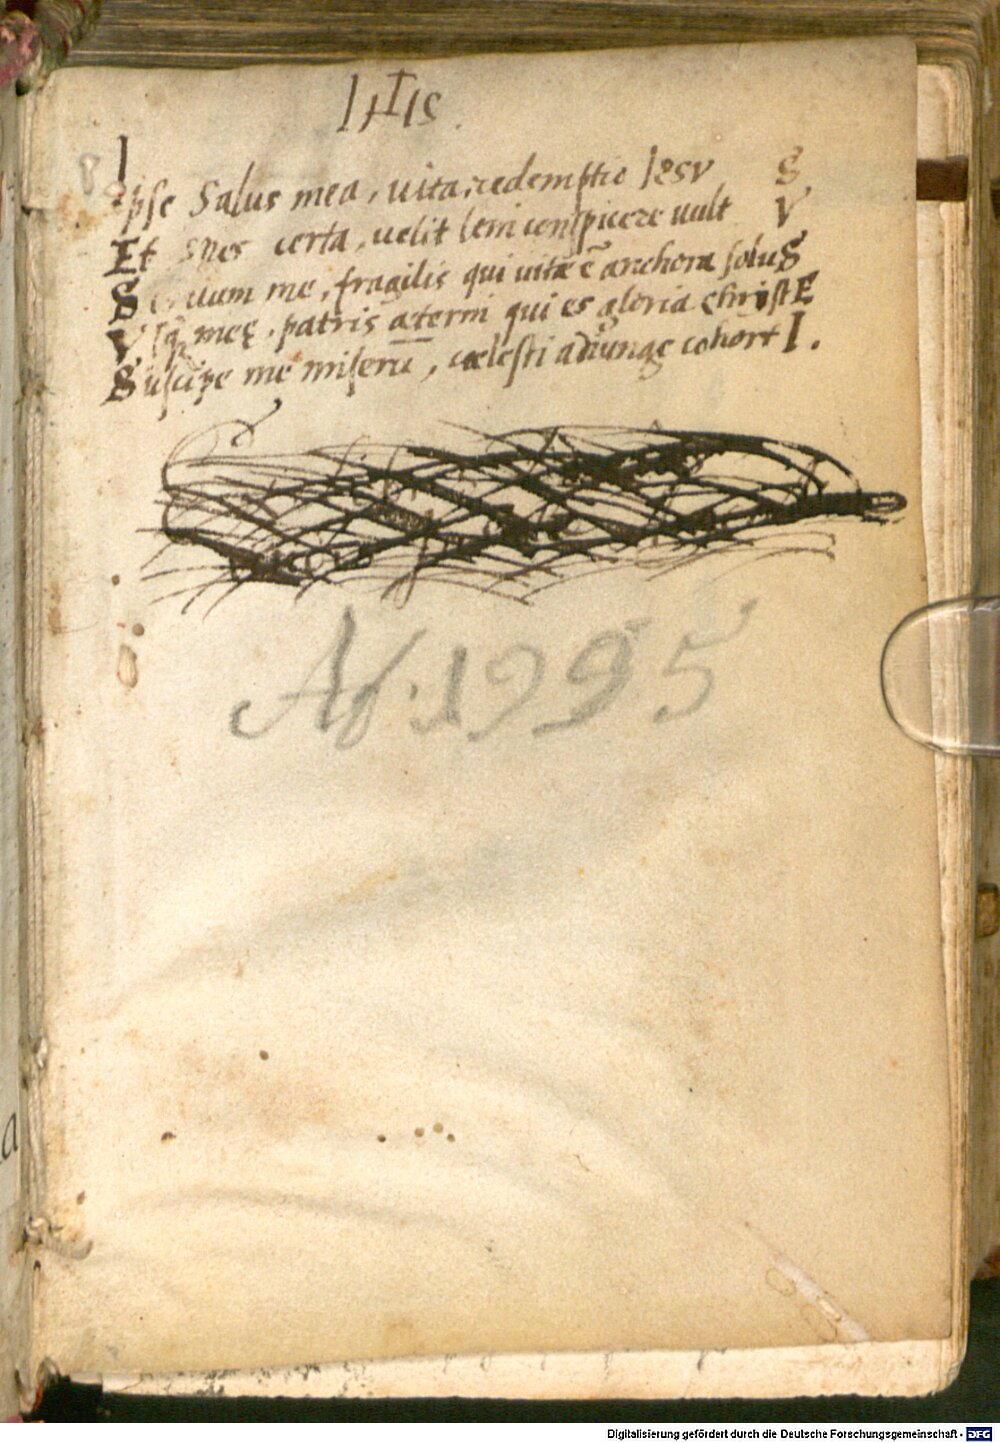 IHIS
Ipse Salus mea, uita, redemptio IESV S
Et spes certa, uelit leni conspicere uult V
Seruum me, fragilis qui uitæ ē anchora soluS
V meę, patris æterni qui es gloria christE
Suscipe me miserū, cœlesti adiunge cohortI.
1995
a
Digitalisierung gefördert durch die Deutsche Forschungsgemeinschaft - DFG